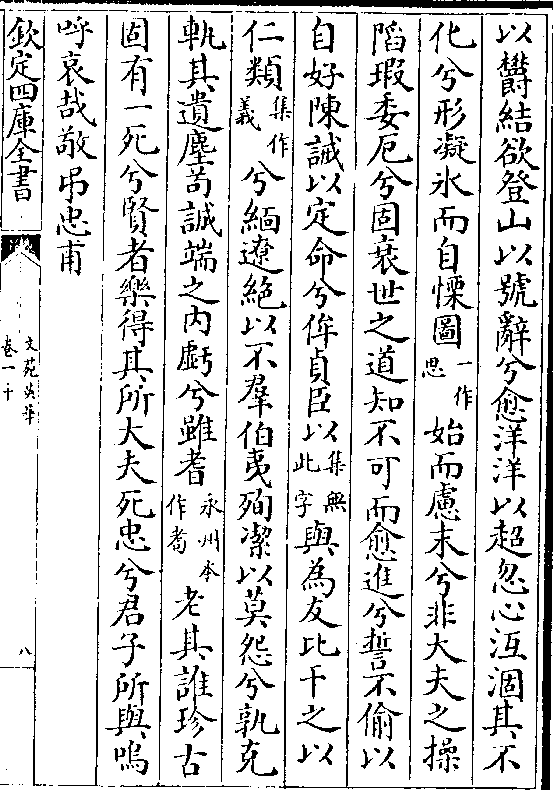 以欝結欲登山以號辭兮愈洋洋以超忽心沍涸其不
化兮形凝氷而自慄圖一作思始而慮末兮非大夫之操
陷瑕委厄兮固衰世之道知不可而愈進兮誓不偷以
自好陳誠以定命兮侔貞臣以集無此字與為友比干之以
仁類集作義兮緬遼絶以不羣伯夷殉潔以莫怨兮孰克
軌其遺塵苟誠端之内虧兮雖耆永州本作耇老其誰珍古
固有一死兮賢者樂得其所大夫死忠兮君子所與嗚
呼哀哉敬弔忠甫
欽定四庫全書
文苑英華
卷一千
八